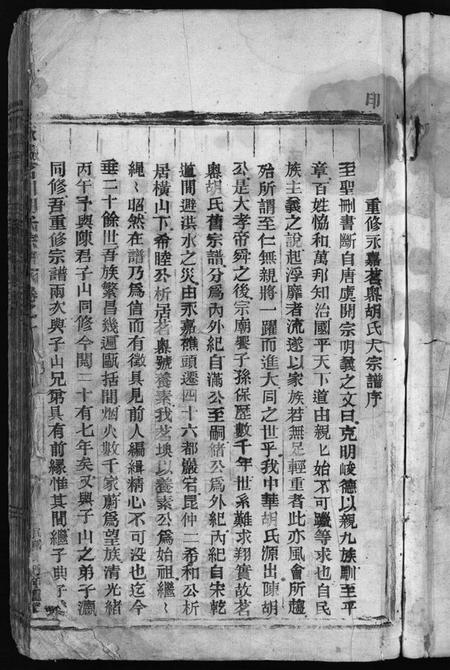 印
重修永嘉茗岙胡氏大宗譜序
至聖刪書斷自唐虞開宗明義之文曰克明峻德以親九族馴至平
章百姓恊和萬邦知治國平天下道由親乚始不可躐等求也自民
族主義之說起浮靡者流遂以家族若無足輕重者此亦風會所趨
殆所謂至仁無親將一躍而進大同之世乎我中華胡氏源出陳胡
公是大孝帝舜之後宗廟饗子孫保歷數千年世系難求翔實故茗
岙胡氏舊宗譜分爲內外紀自滿公至嗣緒公爲外紀內紀自宋乾
道間避洪水之災由永嘉樵頭遷四十六都巖宕毘仲二希和公析
居橫山下希睦公析居茗岙號養素我茗墺以養素公爲始祖繼乚
繩乚昭然在譜乃爲信而有徵具見前人編緝精心不可沒也迄今
垂二十餘世吾族繁昌幾遍甌括間烟火數千家蔚爲望族清光緒
丙午予與陳君子山同修今閱二十有七年矣又與子山之弟子瀛
同修吾重修宗譜兩次與子山兄弟具有前緣惟其間繼子典子